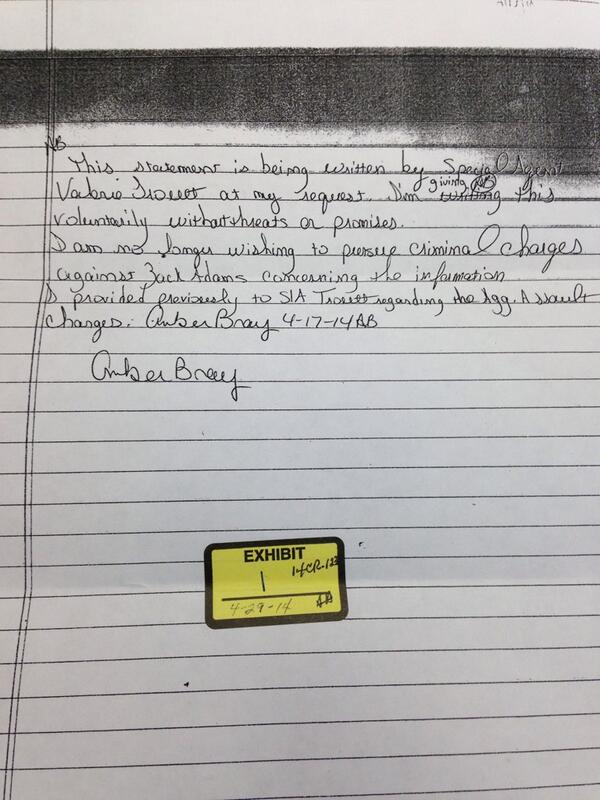 AB
This statement is being written by Special Agent
Valerie Troutt at my request. I'm writing giving AB this
voluntarily without threats or promises.
I am no longer wishing to persue criminal charges
against Zack Adams concerning the information
I provided previously to S/A Troutt regarding the Agg. Assault
charges. Amber Bray 4-17-14 AB
Amber Bray
EXHIBIT
1
14CR-123
4-29-14